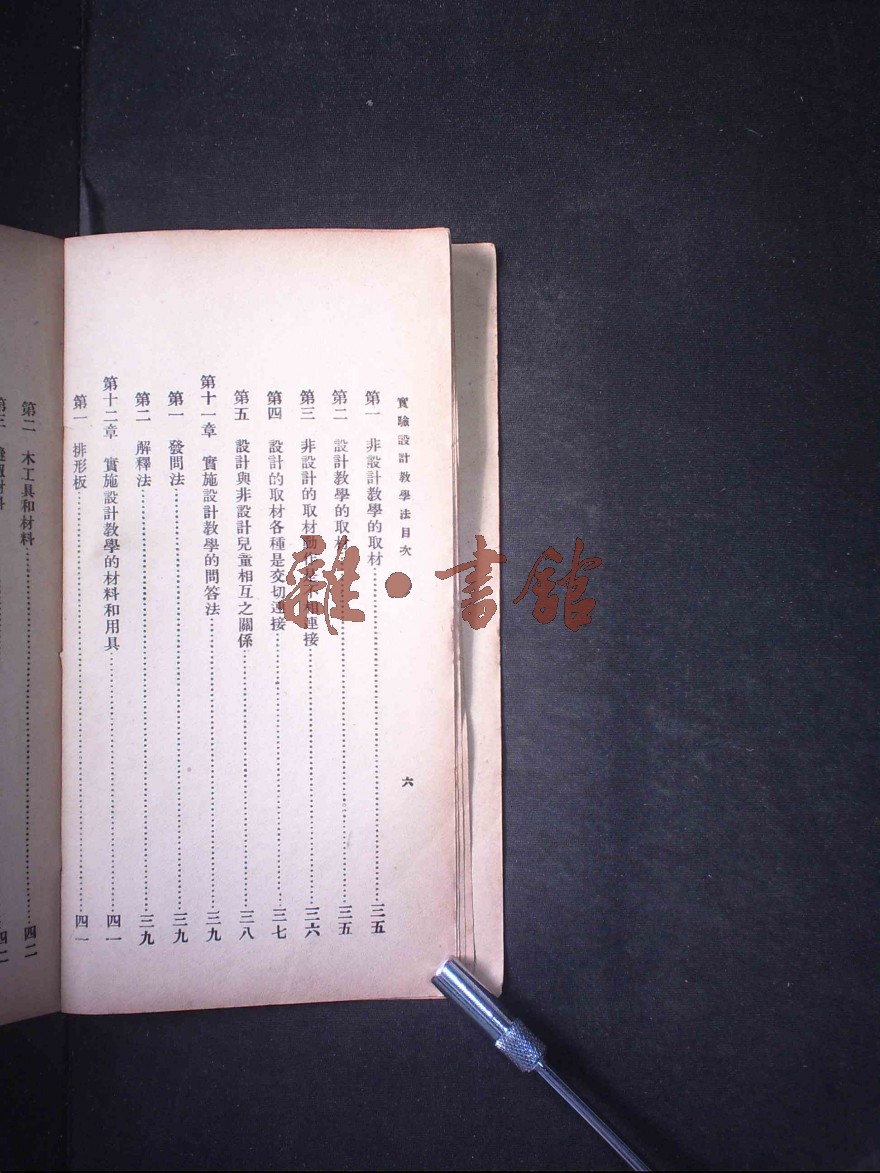 實驗設計教學法目次
六
第一 非設計教學的取材……三五
第二 設計教學的取材……三五
第三 非設計的取材動作是不相連接……三六
第四 設計的取材各種是交切連接……三七
第五 設計與非設計兒童相互之關係……三八
第十一章 實施設計教學的問答法……三九
第一 發問法……三九
第二 解釋法……三九
第十二章 實施設計教學的材料和用具……四一
第一 排形板……四一
第二 木工具和材料……四二
第三 材料……四二
雜·書館